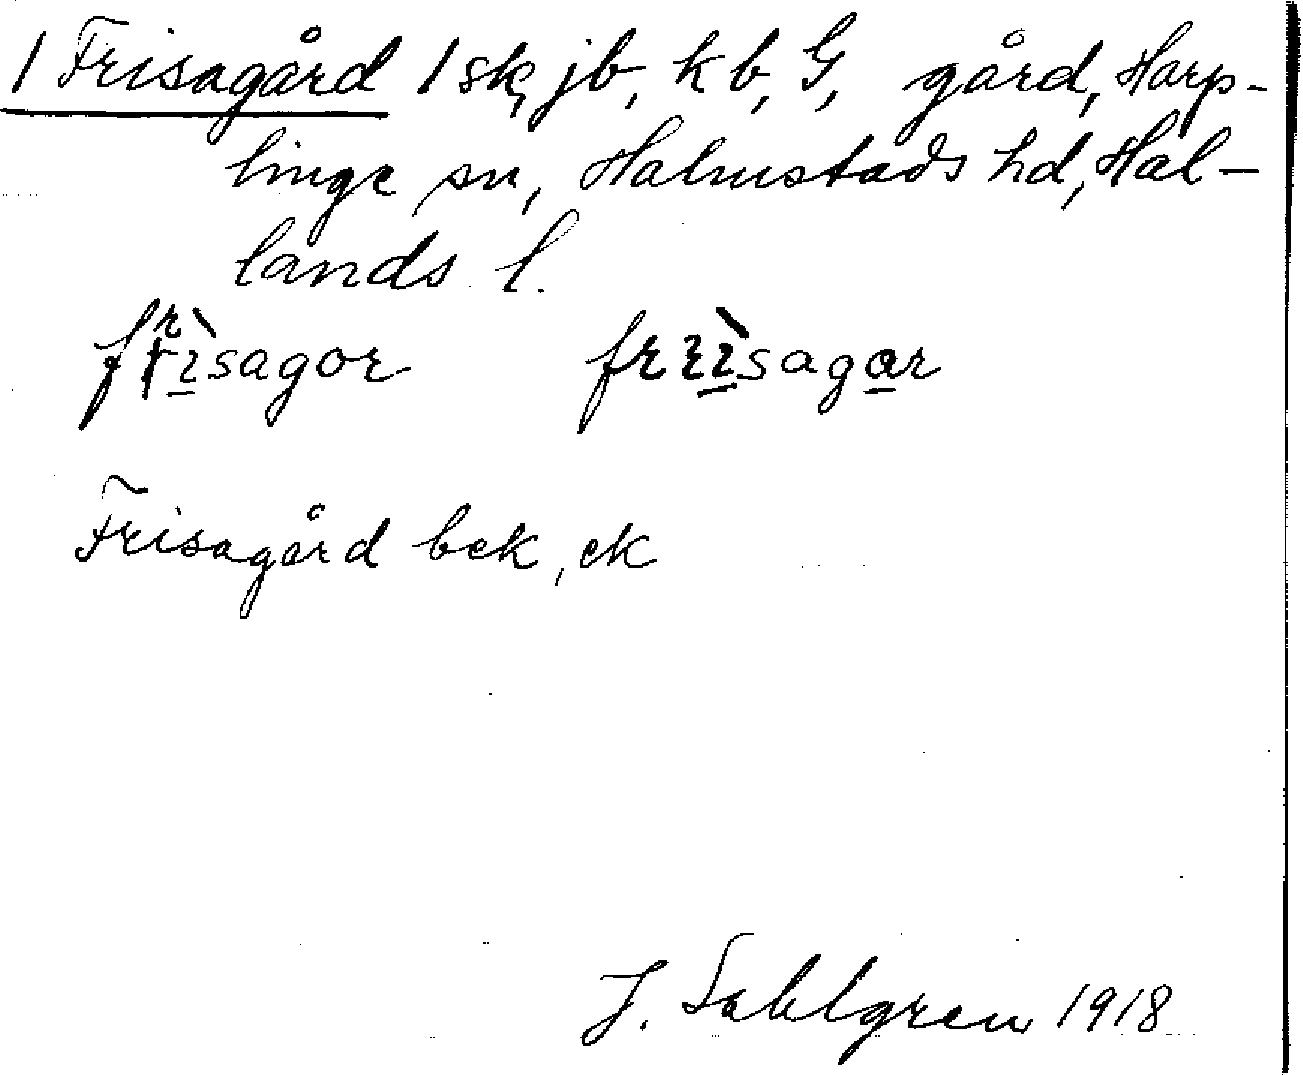 / Frisagård / sk, jb, kb, G, gård, Harp-
linge sn, Halmstads hd, Hal-
lands l.
frɪ̠̀sagor frɪɪ̠̀saga̠r
Frisagård bek, ek
J. Sahlgren 1918